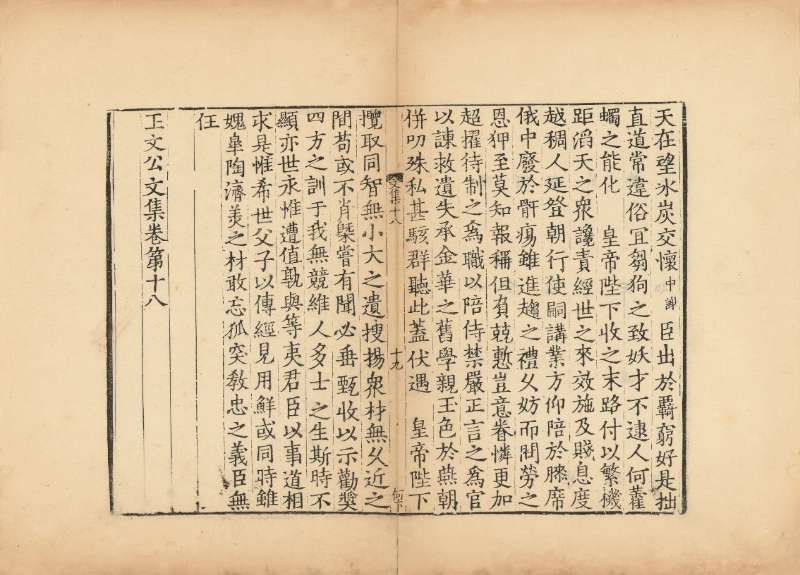 天在望氷炭交懷中謝臣出於羈窮好是拙
直道常違俗冝芻狗之致妖才不逮人何藿
蠋之能化　皇帝陛下收之末路付以繁機
距滔天之衆讒責經世之來效施及賤息度
越稠人延登朝行使嗣講業方仰陪於勝席
俄中廢於骭瘍雖進趨之禮久妨而閒勞之
恩狎至莫知報稱但負兢慙豈意眷憐更加
超擢待制之爲職以陪侍禁嚴正言之爲官
以諫救遺失承金華之舊學親玉色於燕朝
併叨殊私甚駭群聽此蓋伏遇　皇帝陛下
文集十八
十九
攬取同智無小大之遺搜揚衆材無久近之
間苟或不肖槩嘗有聞必垂甄收以示勸奬
四方之訓于我無競維人多士之生斯時不
顯亦世永惟遭值孰與等夷君臣以事道相
求是惟希世父子以傳經見用鮮或同時雖
媿皐陶濟美之材敢忘狐突敎忠之義臣無
任
王文公文集卷第十八